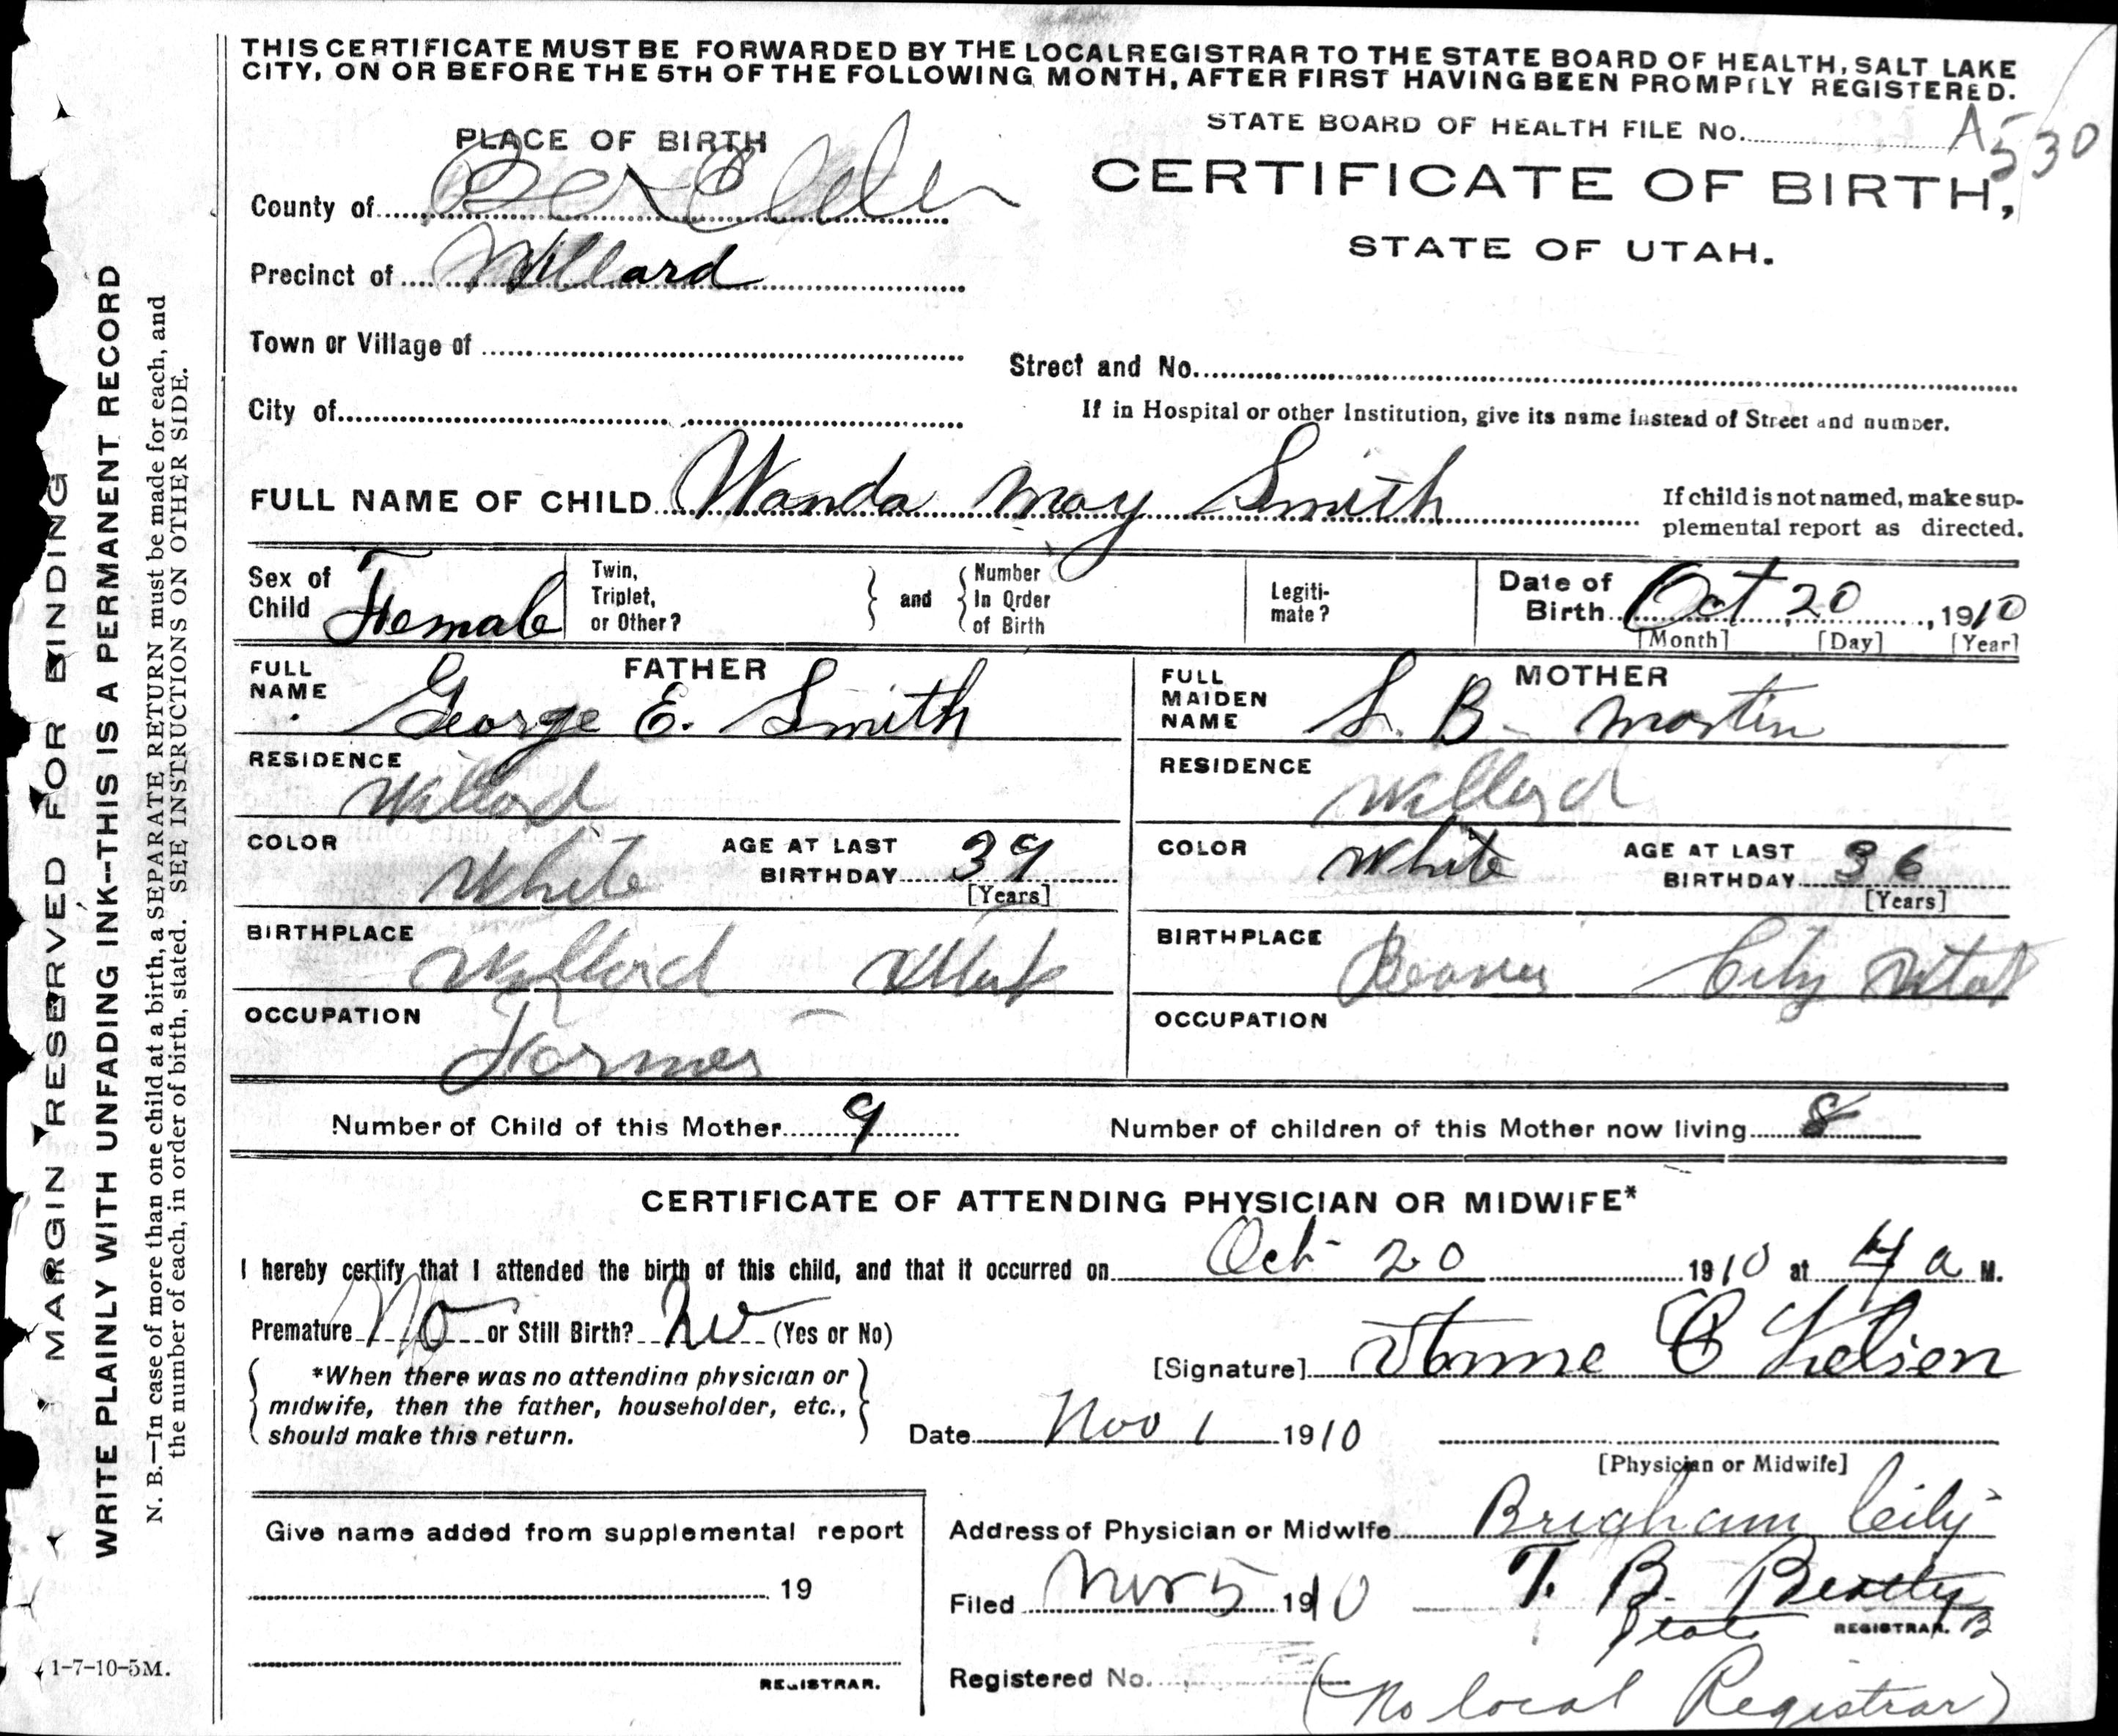 THIS CERTIFICATE MUST BE FORWARDED BY THE LOCAL REGISTRAR TO THE STATE BOARD OF HEALTH, SALT LAKE
CITY, ON OR BEFORE THE 5TH OF THE FOLLOWING MONTH, AFTER FIRST HAVING BEEN PROMPTLY REGISTERED.
STATE BOARD OF HEALTH FILE No. A530
PLACE OF BIRTH
CERTIFICATE OF BIRTH,
STATE OF UTAH.
County of Box Elder
Precinct of Willard
Town or Village of
Street and No.
City of
If in Hospital or other Institution, give its name instead of Street and number.
FULL NAME OF CHILD Wanda May Smith
If child is not named, make sup-
plemental report as directed.
Sex of Child Female
Twin, Triplet, or Other?
and
Number In Order of Birth
Legiti-
mate?
Date of Birth Oct 20, 1910
[Month] [Day] [Year]
FATHER
FULL NAME George E. Smith
RESIDENCE Willard
COLOR White
AGE AT LAST BIRTHDAY 39
[Years]
BIRTHPLACE Willard Utah
OCCUPATION Farmer
MOTHER
FULL MAIDEN NAME S. B. Martin
RESIDENCE Willard
COLOR White
AGE AT LAST BIRTHDAY 36
[Years]
BIRTHPLACE Beaver City Utah
OCCUPATION
Number of Child of this Mother 9
Number of children of this Mother now living 8
CERTIFICATE OF ATTENDING PHYSICIAN OR MIDWIFE*
I hereby certify that I attended the birth of this child, and that it occurred on Oct 20 1910 at 4 a M.
Premature No or Still Birth? No (Yes or No)
*When there was no attending physician or
midwife, then the father, householder, etc.,
should make this return.
[Signature] C
Date Nov 1 1910
[Physician or Midwife]
Give name added from supplemental report
19
REGISTRAR.
Address of Physician or Midwife Brigham City
Filed Nov 5 1910 T. B. Beatty
State REGISTRAR. B
Registered No.
(No local Registrar)
1-7-10-5M.
MARGIN RESERVED FOR BINDING
WRITE PLAINLY WITH UNFADING INK--THIS IS A PERMANENT RECORD
N. B.—In case of more than one child at a birth, a SEPARATE RETURN must be made for each, and
the number of each, in order of birth, stated. SEE INSTRUCTIONS ON OTHER SIDE.